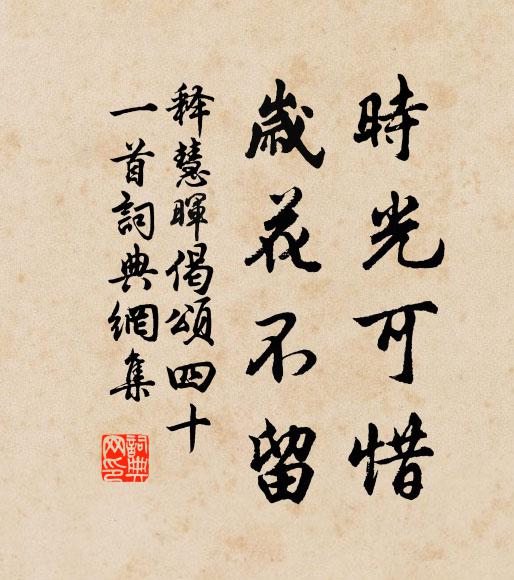 時光可惜
歲花不留
释慧暉偈頌四十
一首詞典網集
詞典网印